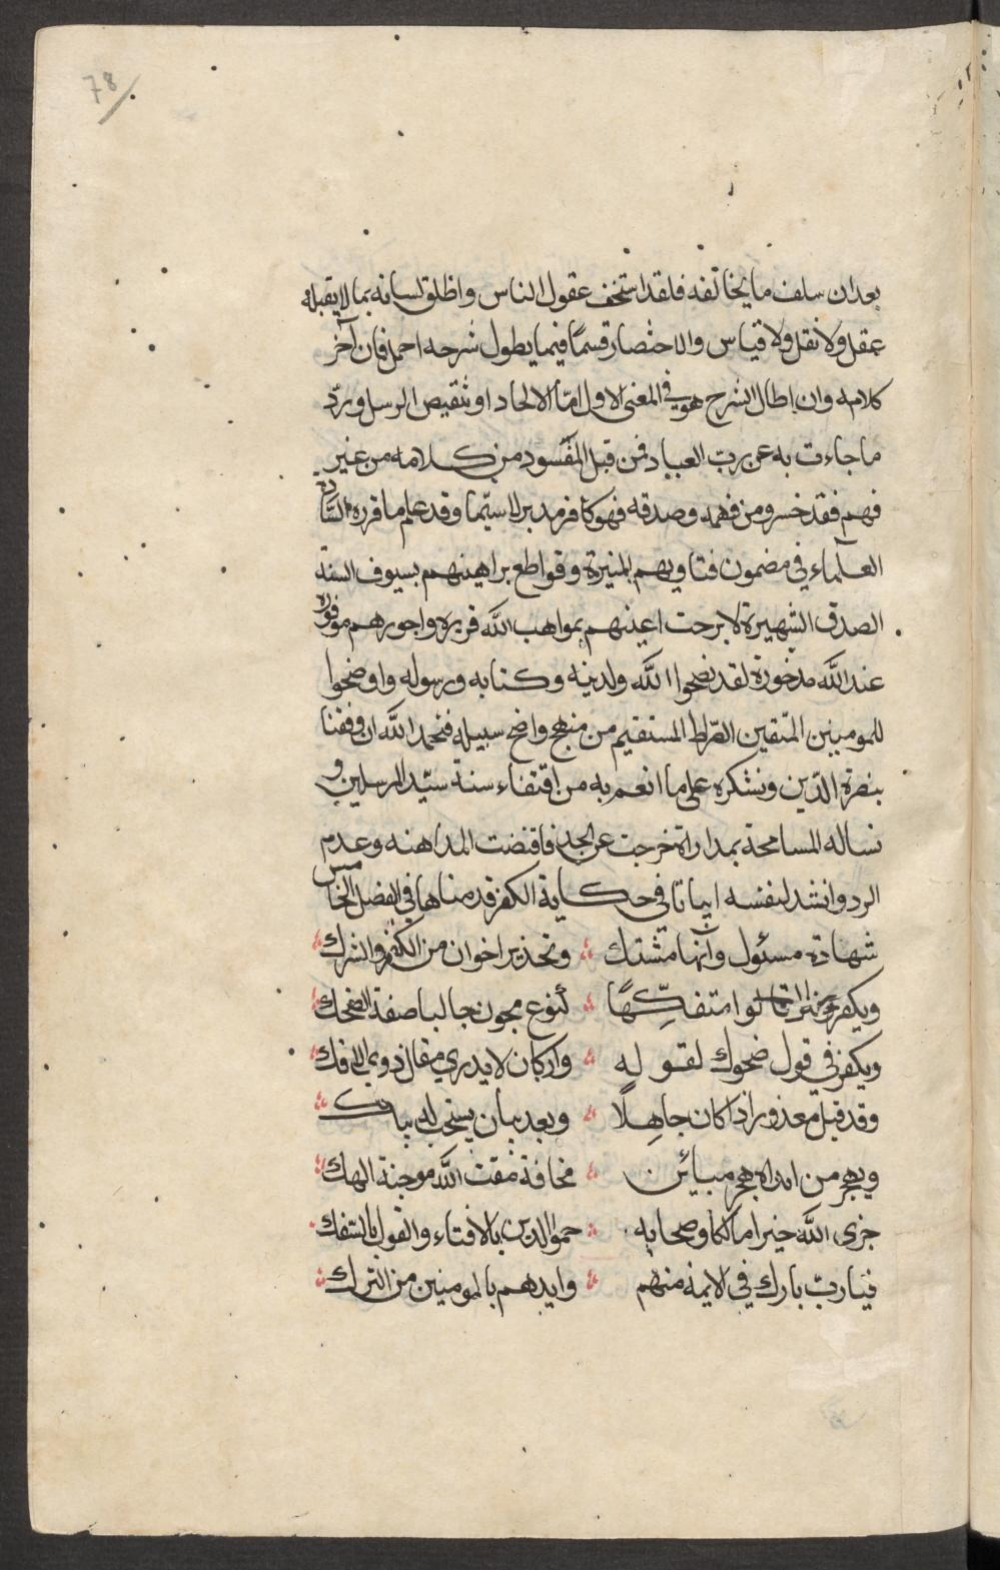 78
بعد ان سلف ما يخالفه فلقد استخف عقول الناس واطلق لسانه بما لا يقبله
عقل ولا نقل ولا قياس والاختصار قسمًا فيما يطول شرحه اجمل فان آخر
كلامه وان اطال الشرح هو في المعنى الاول امّا الالحاد او تنقيص الرسل ورد
ما جاءت به عن ربّ العباد فمن قبل المقصود من كلامه من غير
فهم فقد خسر ومن فهمه وصدقه فهو كافر مدبر لا سيّما وقد علم ما قرره السّادة
العلماء في مضمون فتاويهم المنيرة وقواطع براهينهم بسيوف السنة
الصدق الشهيرة لا برحت اعينهم بمواهب الله قريرة واجورهم موفورة
عند الله مذخورة لقد نصحوا الله ولدينه وكتابه ورسوله واوضحوا
للمومنين المتّقين الصّراط المستقيم من منهج واضح سبيله فنحمد الله ان وفقنا
بنصرة الدّين ونشكره على ما انعم به من اقتفاء سنة سيّد المرسلين و
نساله المسامحة بمداراة خرجت عن الجد فاقتضت المداهنه وعدم
الرد وانشد لنفسه ابياتا في حكاية الكفر قدمناها في الفصل الخامس
شهادة مسئول وآنها مشتك ؞ وتحذير اخوان من الكفر والشرك
ويكفر من قالوا متفكّهًا ؞ لنوع مجون جالبا صفة الضحك
ويكفر في قول ضحوك لقوله ؞ وان كان لا يدري مقال ذوي الافك
وقد قيل معذور اذا كان جاهلًا ؞ وبعد بيان يستحب له يبك
ويهجر من ابداه هجر مبائن ؞ مخافة مقت الله موجبة الهلك
جزى الله خيرا مالكا وصحابه ؞ حموا الدين بالافتاء والقول بالسفك
فيا ربّ بارك في الايمة منهم ؞ وايدهم بالمومنين من الترك